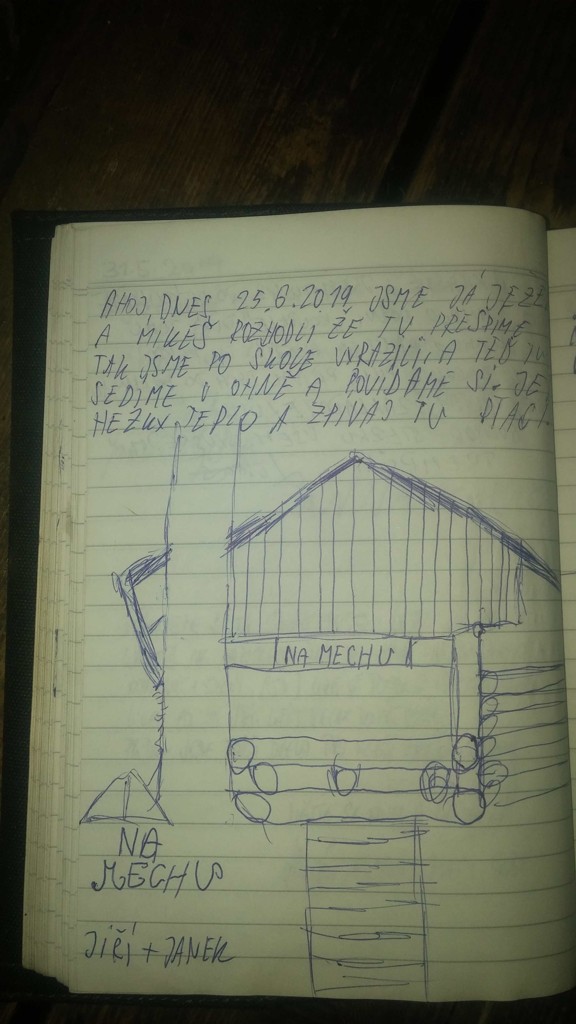 AHOJ, DNES 25.6.2019 JSME JÁ JEZE
A MIKEŠ ROZHODLI ŽE TU PŘESPÍME
TAK JSME PO ŠKOLE VYRAZILI, A TEĎ TU
SEDÍME U OHNĚ A POVÍDÁME SI. JE
HEZKY TEPLO A ZPÍVAJ TU PTÁCI.
NA MECHU
NA
MECHU
JIŘÍ + JANEK